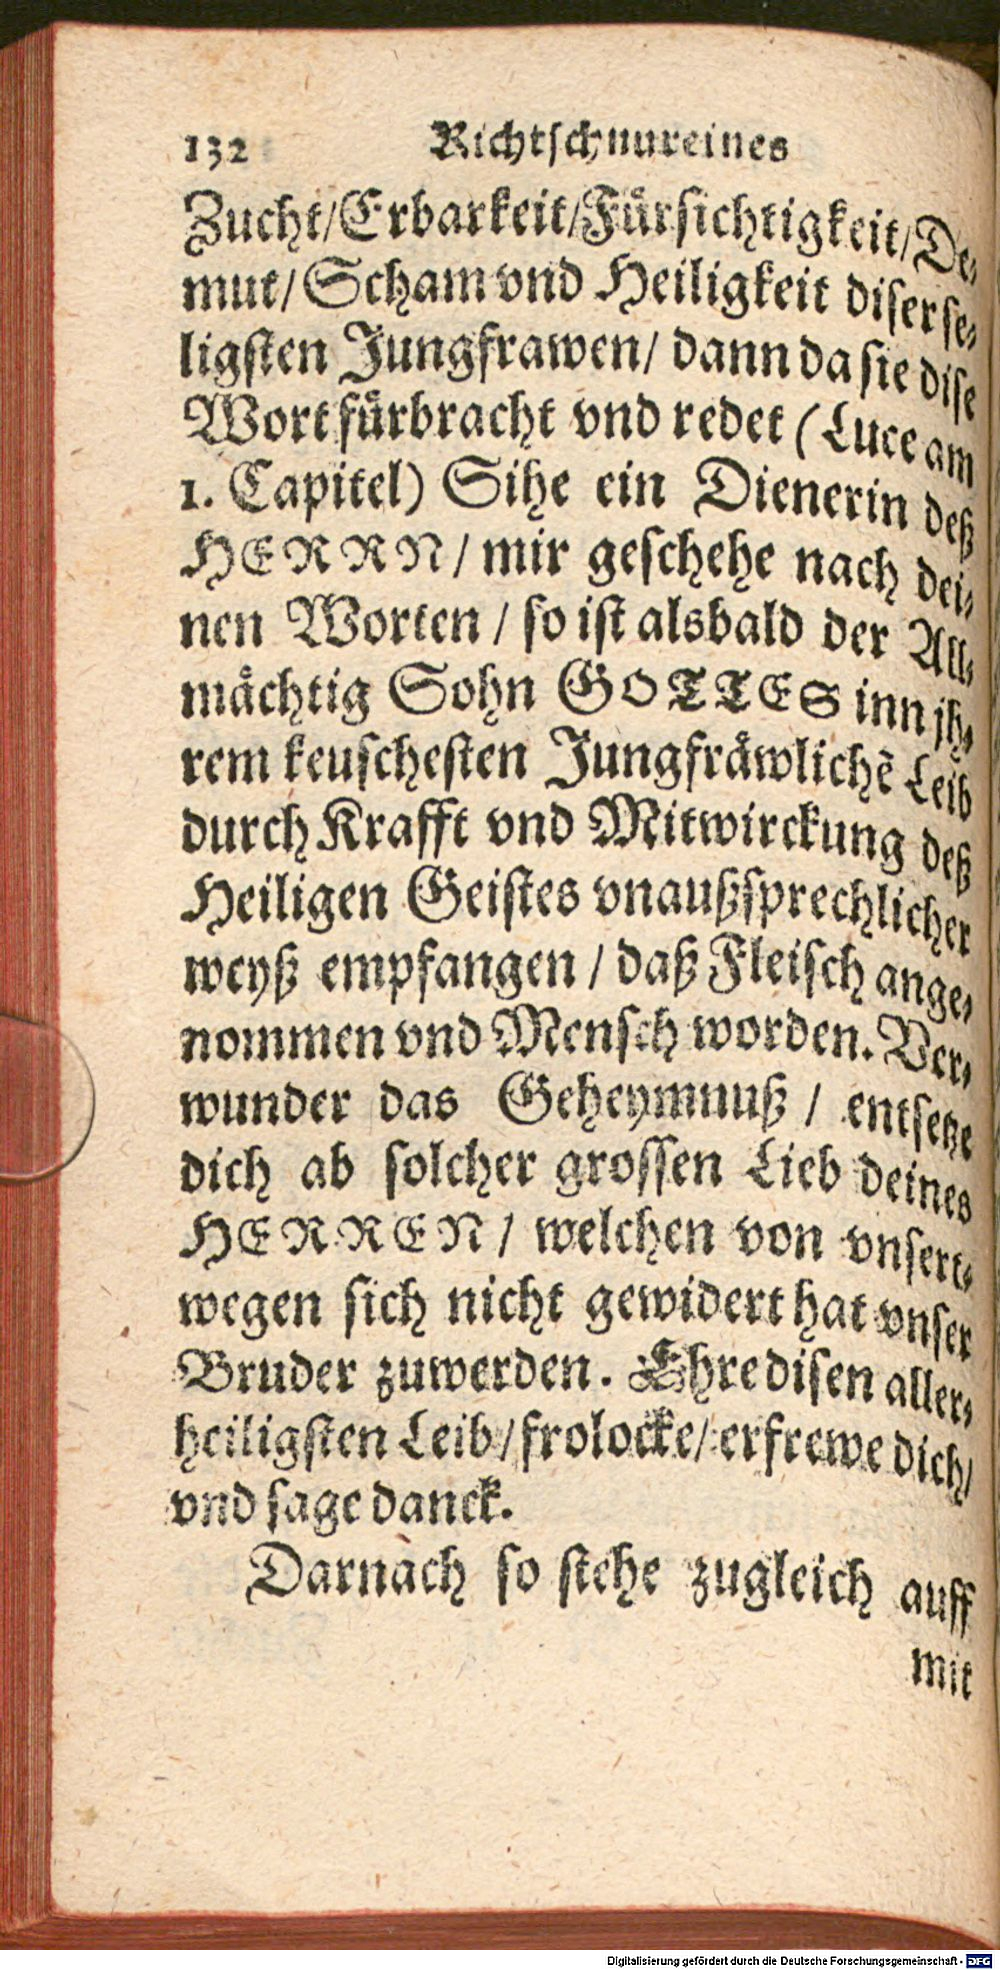 132 Richtschnur eines
Zucht/ Erbarkeit/ Fürsichtigkeit/ De⸗
mut/ Scham vnd Heiligkeit diser se⸗
ligsten Jungfrawen/ dann da sie dise
Wort fürbracht vnd redet (Luce am
1. Capitel) Sihe ein Dienerin deß
HERRN/ mir geschehe nach dei⸗
nen Worten / so ist alsbald der All⸗
mächtig Sohn GOTTES inn jh⸗
rem keuschesten Jungfräwlichẽ Leib
durch Krafft vnd Mitwirckung deß
Heiligen Geistes vnaußsprechlicher
weyß empfangen / daß Fleisch ange⸗
nommen vnd Mensch worden. Ver⸗
wunder das Geheymnuß / entsetze
dich ab solcher grossen Lieb deines
HERREN/ welchen von vnsert⸗
wegen sich nicht gewidert hat vnser
Bruder zuwerden. Ehre disen aller⸗
heiligsten Leib/ frolocke/ erfrewe dich/
vnd sage danck.
Darnach so stehe zugleich auff
mit
Digitalisierung gefördert durch die Deutsche Forschungsgemeinschaft - DFG